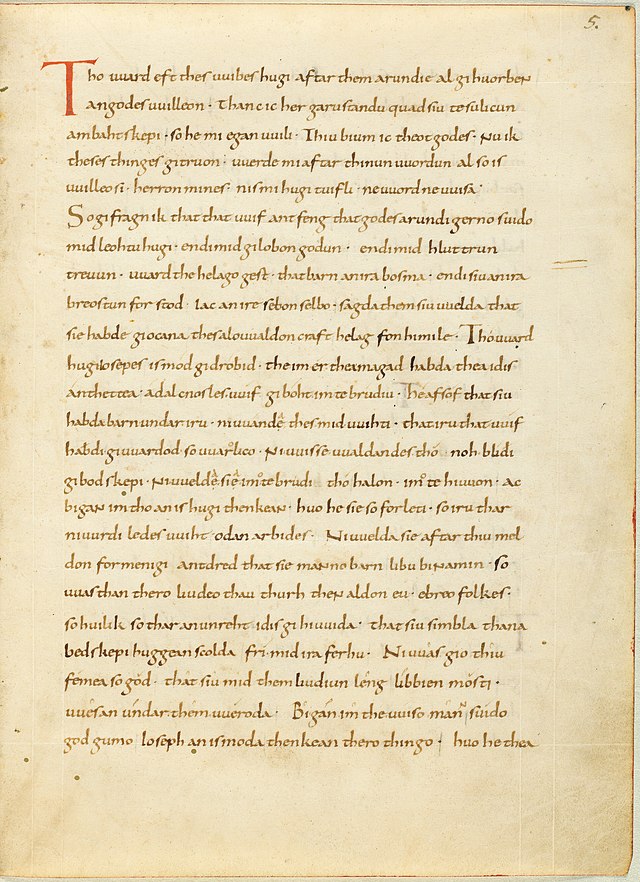 5.
Tho uuard eft thes uuibes hugi aftar them arundie al gihuorben
an godes uuilleon · Than ic her garu standu quad siu te sulicun
ambaht skepi · so he mi egan uuili · Thiu bium ic theot godes · Nu ik
theses thinges gitruon · uuerde mi aftar thinun uuordun al so is
uuilleo si · herron mines · nis mi hugi tuifli · ne uuord ne uuisa
So gifragn ik that that uuif antfeng that godes arundi gerno suido
mid leohtu hugi · endi mid gilobon godun · endi mid hluttrun
treuun · uuard the helago gest · that barn an ira bosma · endi siu an ira
breostun forstod · iac an ire sebon selbo · sagda them siu uuelda that
sie habde giocana thes alouualdon craft helag fon himile · Tho uuard
hugi iosepes is mod gidrobid · the im er thea magad habda thea idis
anthettea · adalcnosles uuif giboht im te brudiu · He afsof that siu
habda barn undar iru · ni uuandẹ thes mid uuihti · that iru that uuif
habdi giuuardod so uuarolico · Ni uuisse uualdandes tho noh blidi
gibodskepi · Ni uueldẹ siẹ imo te brudi tho halon · imo te hiuuon · ac
bigan im tho an is hugi thenkean · huo he sie so forleti · so iru thar
ni uurdi ledes uuiht odan arbides · Ni uuelda sie aftar thiu mel
don for menigi antdred that sie manno barn libu binamin · so
uuas than thero liudeo thau thurh then aldon eu · ebreo folkes ·
so huilik so thar an unreht idis gihiuuida · that siu simbla thana
bedskepi buggean scolda fri mid ira ferhu · Ni uuas gio thiu
femea so gód · that siu mid them liudiun leng libbien mosti ·
uuesan undar them uueroda · Bigan im the uuiso mañ suido
god gumo Ioseph an is moda thenkean thero thingo · huo he thea